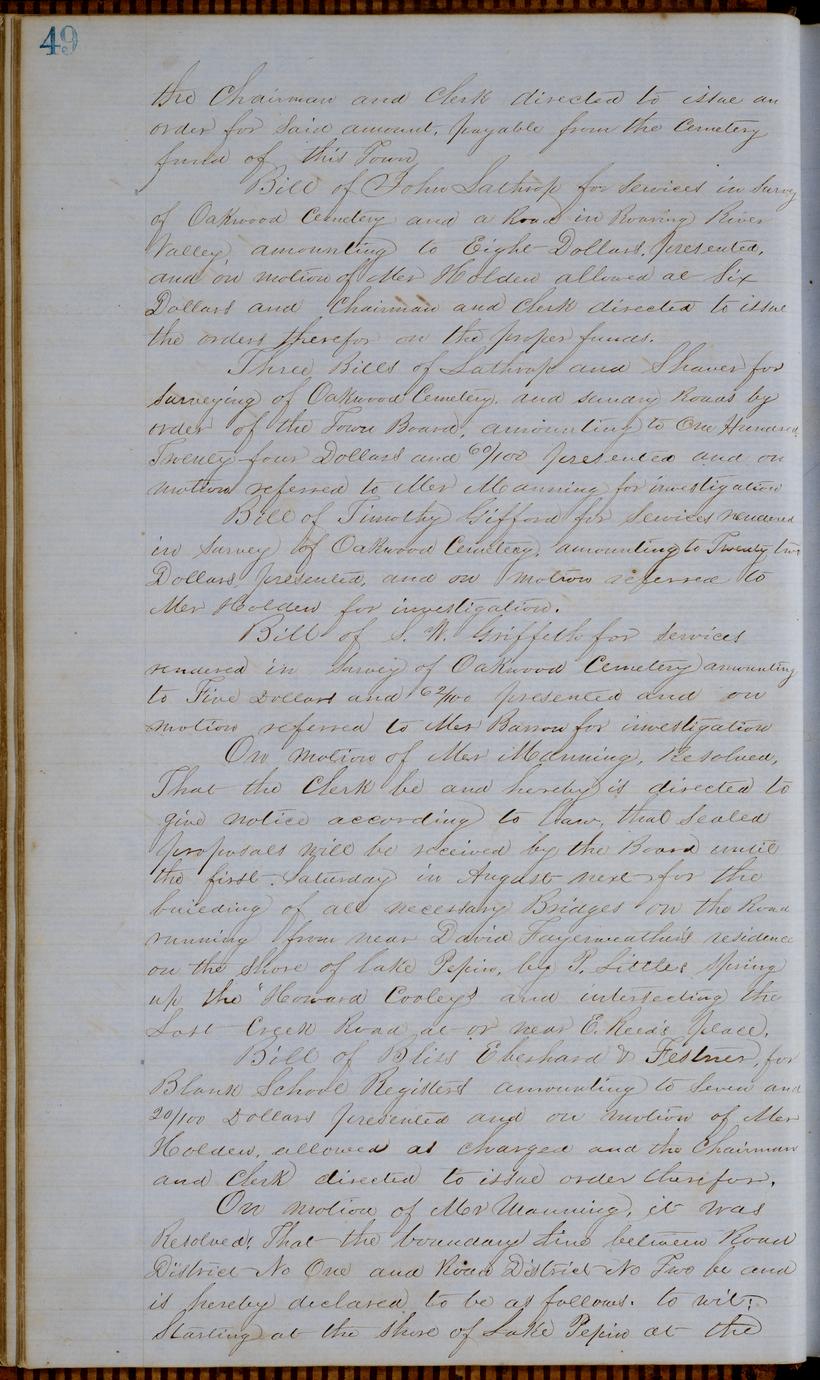 49
the Chairman and Clerk directed to issue an
order for said amount, payable from the Cemetery
fund of this Town
Bill of John Lathrop for Services in Survey
of Oakwood Cemetery and a Road in Roaring River
Valley, amounting to Eight Dollars, presented,
and on motion of Mr Holden allowed at Six
Dollars and Chairman and Clerk directed to issue
the orders therefor on the proper funds.
Three Bills of Lathrop and Shaver for
surveying of Oakwood Cemetery, and sundry Roads by
order of the Town Board, amounting to One Hundred
Twenty four Dollars and 60/100 presented and on
motion referred to Mr Manning for investigation
Bill of Timothy Gifford for Services rendered
in Survey of Oakwood Cemetery, amounting to Twenty two
Dollars presented, and on motion referred to
Mr Holden for investigation.
Bill of S. W. Griffeth for Services
rendered in Survey of Oakwood Cemetery amounting
to Five Dollars and 62/100 presented and on
motion referred to Mr Barron for investigation
On motion of Mr Manning, Resolved,
That the Clerk be and hereby is directed to
give notice according to Law, that Sealed
proposals will be received by the Board until
the first Saturday in August next for the
building of all necessary Bridges on the Road
running from near David Fayerweather's residence
on the Shore of lake Pepin, by P. Littles Spring
up the "Howard Cooleys and intersecting the
Lost Creek Road at or near E. Reed's place.
Bill of Bliss Eberhard & Festner, for
Blank School Registers amounting to Seven and
20/100 Dollars presented and on motion of Mr
Holden, allowed as charged and the Chairman
and Clerk directed to issue order therefor.
On motion of Mr Manning, it was
Resolved, That the boundary line between Road
District No One and Road District No Two be and
is hereby declared to be as follows. to wit:
Starting at the Shore of Lake Pepin at the